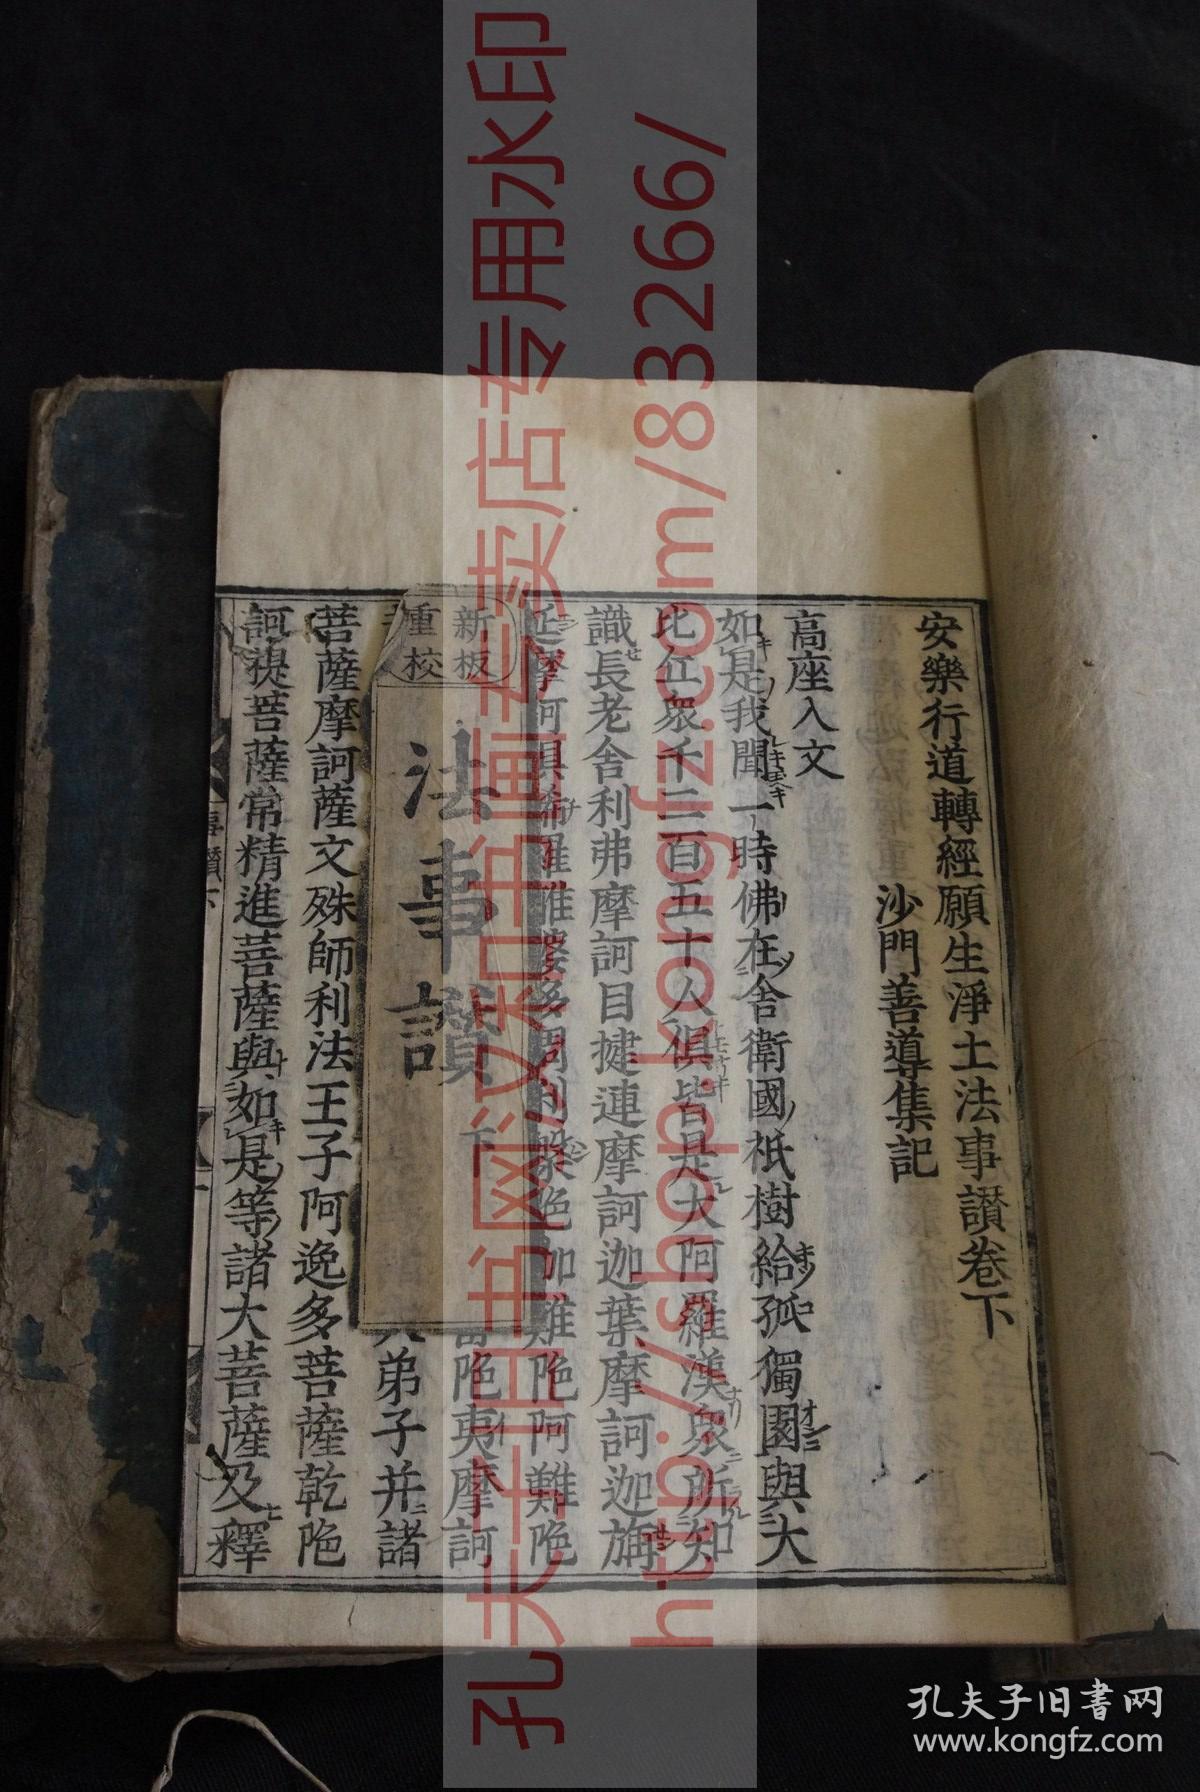 安樂行道轉經願生淨土法事讃卷下
沙門善導集記
高座入文
如是我聞一時佛在舍衛國祇樹給孤獨園與大
比丘衆千二百五十人俱皆是大阿羅漢衆所知
識長老舍利弗摩訶目揵連摩訶迦葉摩訶迦旃
延摩訶俱絺羅離婆多周利槃陁伽難陁阿難陁
陁夷摩訶
弟子并諸
菩薩摩訶薩文殊師利法王子阿逸多菩薩乾陁
訶提菩薩常精進菩薩與如是等諸大菩薩及釋
新板
重校
法事讃
下
事讃下
孔夫子旧书网汉和书画专卖店专用水印
http://shop.kongfz.com/83266/
孔夫子旧書网
www.kongfz.com